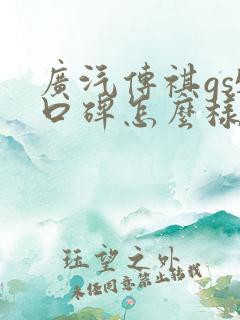 廣汽傳祺gs
口碑怎麼樣
珏望之外
未经同意禁止转载